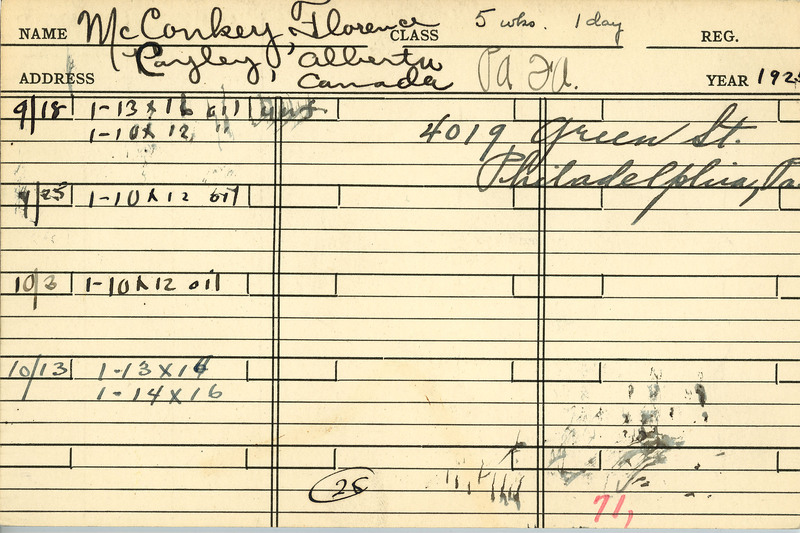 NAME McConkey, Florence CLASS 5 wks. 1 day REG.
ADDRESS Cayley, Alberta Canada PA FA. YEAR 192
9/18 1-13 x 16 oil
1-10 x 12 "
4019 Green St.
Philadelphia, Pa
9/25 1-10 x 12 oil
10/2 1-10 x 12 oil
10/13 1-13 x 16
1-14 x 16
25
71,